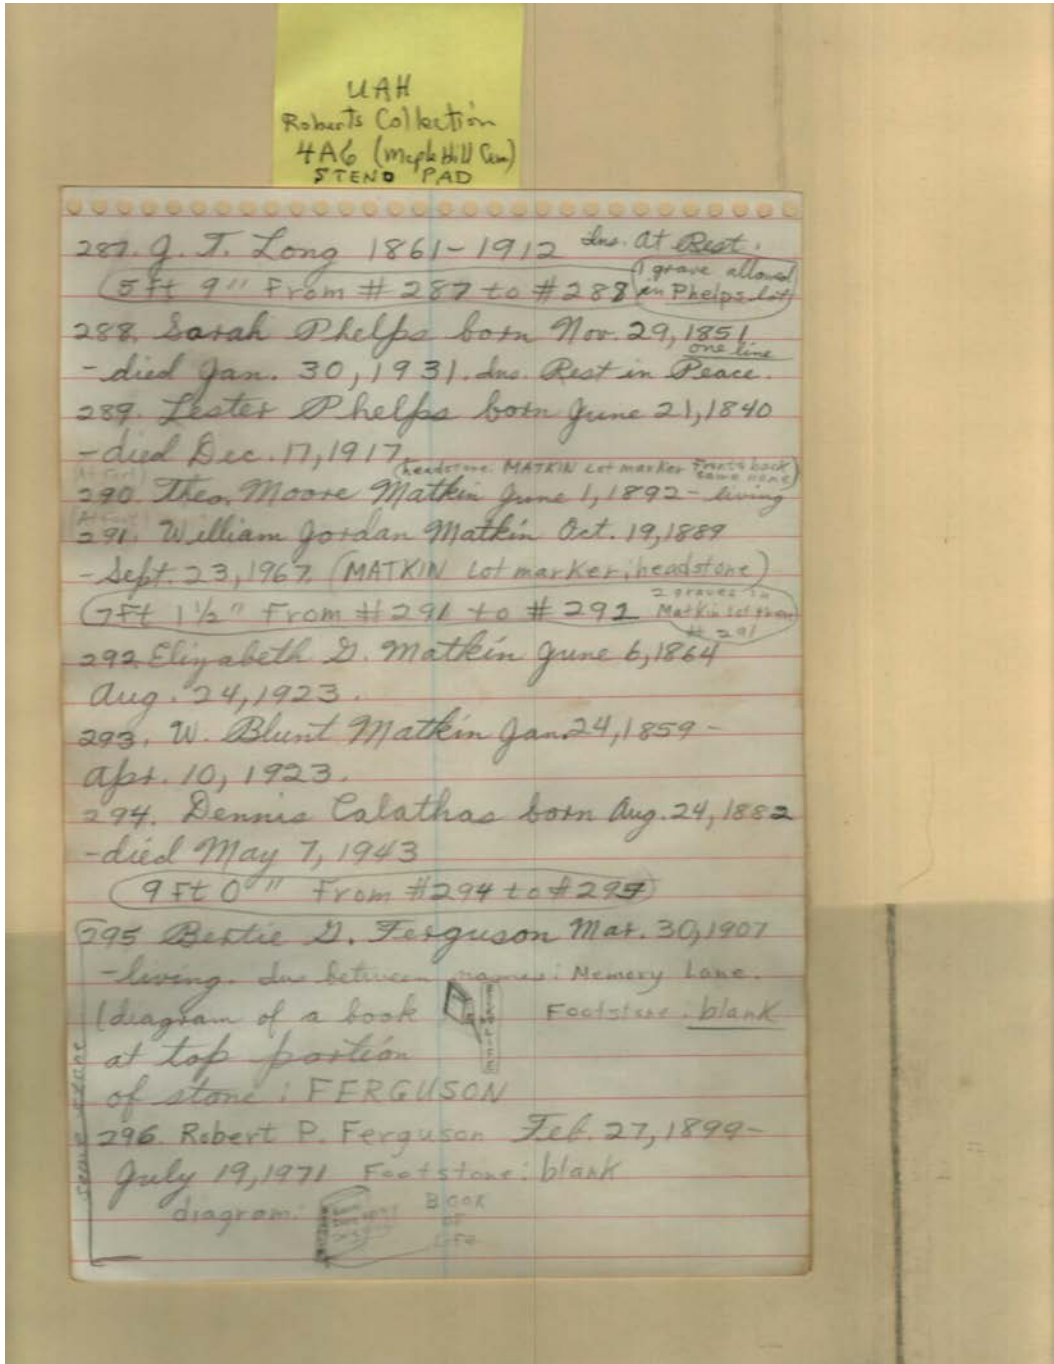 UAH
Roberts Collection
4A6 (Maple Hill Cem)
STENO PAD
287. J. T. Long 1861-1912 Ins. At Rest.
(5 Ft 9" From # 287 to # 288) (1 grave allowed in Phelps lot)
288. Sarah Phelps born Nov. 29, 1851
one line
- died Jan. 30, 1931. Ins. Rest in Peace.
289. Lester Phelps born June 21, 1840
- died Dec. 17, 1917.
(headstone. MATKIN Lot marker Front & back same name)
290. Theo. Moore Matkin June 1, 1892 - living
291. William Jordan Matkin Oct. 19, 1889
- Sept. 23, 1967. (MATKIN Lot marker; headstone)
(7 Ft 1 1/2" From # 291 to # 292 2 graves in Matkin lot # 291)
292. Elizabeth G. Matkin June 6, 1864
Aug. 24, 1923.
293. W. Blunt Matkin Jan. 24, 1859 -
Apr. 10, 1923.
294. Dennis Calathas born Aug. 24, 1882
- died May 7, 1943
(9 Ft 0" From # 294 to # 295)
295 Bertie G. Ferguson Mar. 30, 1907
- living. Ins between names: Memory Lane.
(diagram of a book Footstone: blank
at top portion
of stone: FERGUSON
296. Robert P. Ferguson Feb. 27, 1899 -
July 19, 1971 Footstone: blank
diagram: BOOK
OF
LIFE
same stone